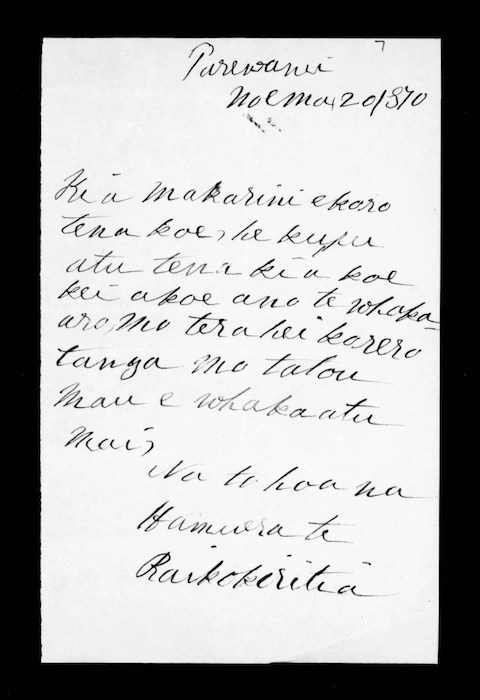 7
Parewanui
Noema, 20/870
Kia Makarini ekoro
tena koe, he kupu
atu tena kia koe
kei akoe ano te whaka-
aro, mo tera hei korero
tanga mo tatou
Mau e whakaatu
mai,
Na to hoa na
Hamuera te
Raikokiritia